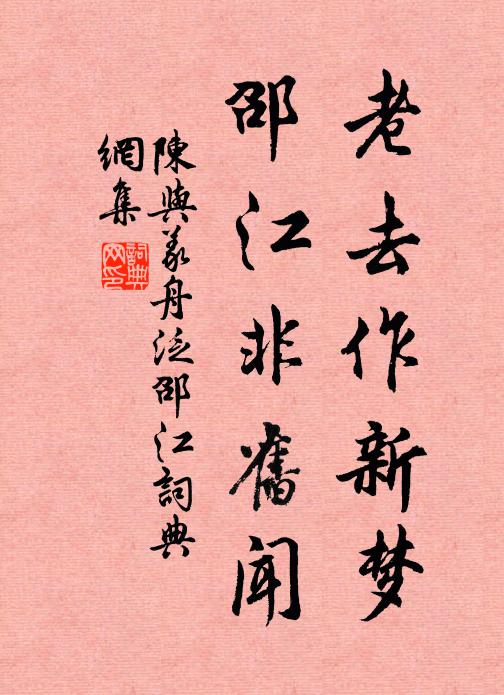 老去作新梦
邵江非舊聞
陳與義舟泛邵江詞典
網集
詞典
网印